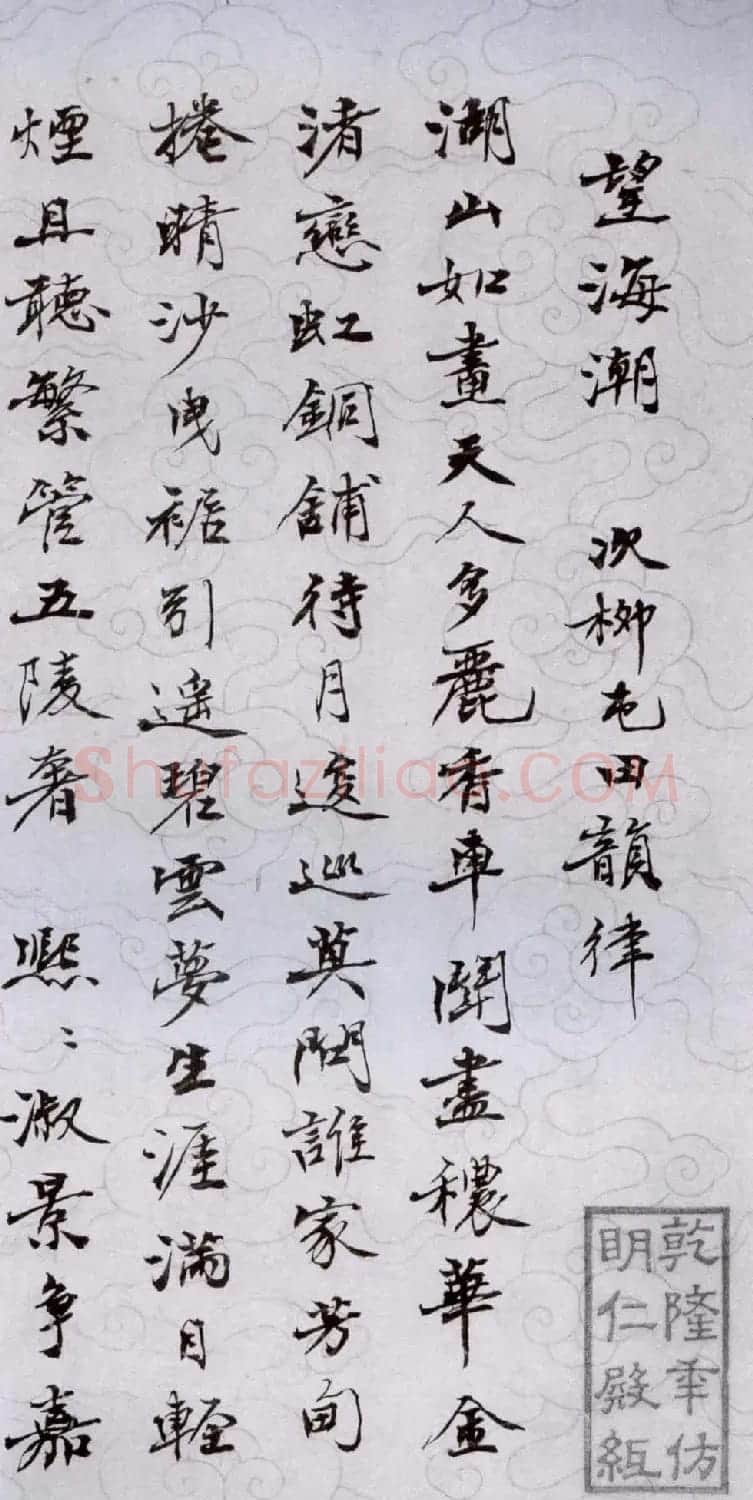 望海潮 次柳屯田韻律
湖山如畫天人多麗香車鬪盡穠華金
渚戀虹銅鋪待月逡巡莫問誰家芳甸
捲晴沙曳裾引遥碧雲夢生涯滿目輕
煙且聽繁管五陵奢 熙〻淑景争嘉
乾隆年仿
明仁殿紙
Shufaziliao.COM